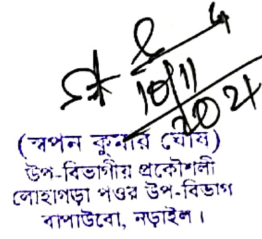 10/11
2024
(স্বপন কুমার ঘোষ)
উপ-বিভাগীয় প্রকৌশলী
লোহাগড়া পওর উপ-বিভাগ
বাপাউবো, নড়াইল।